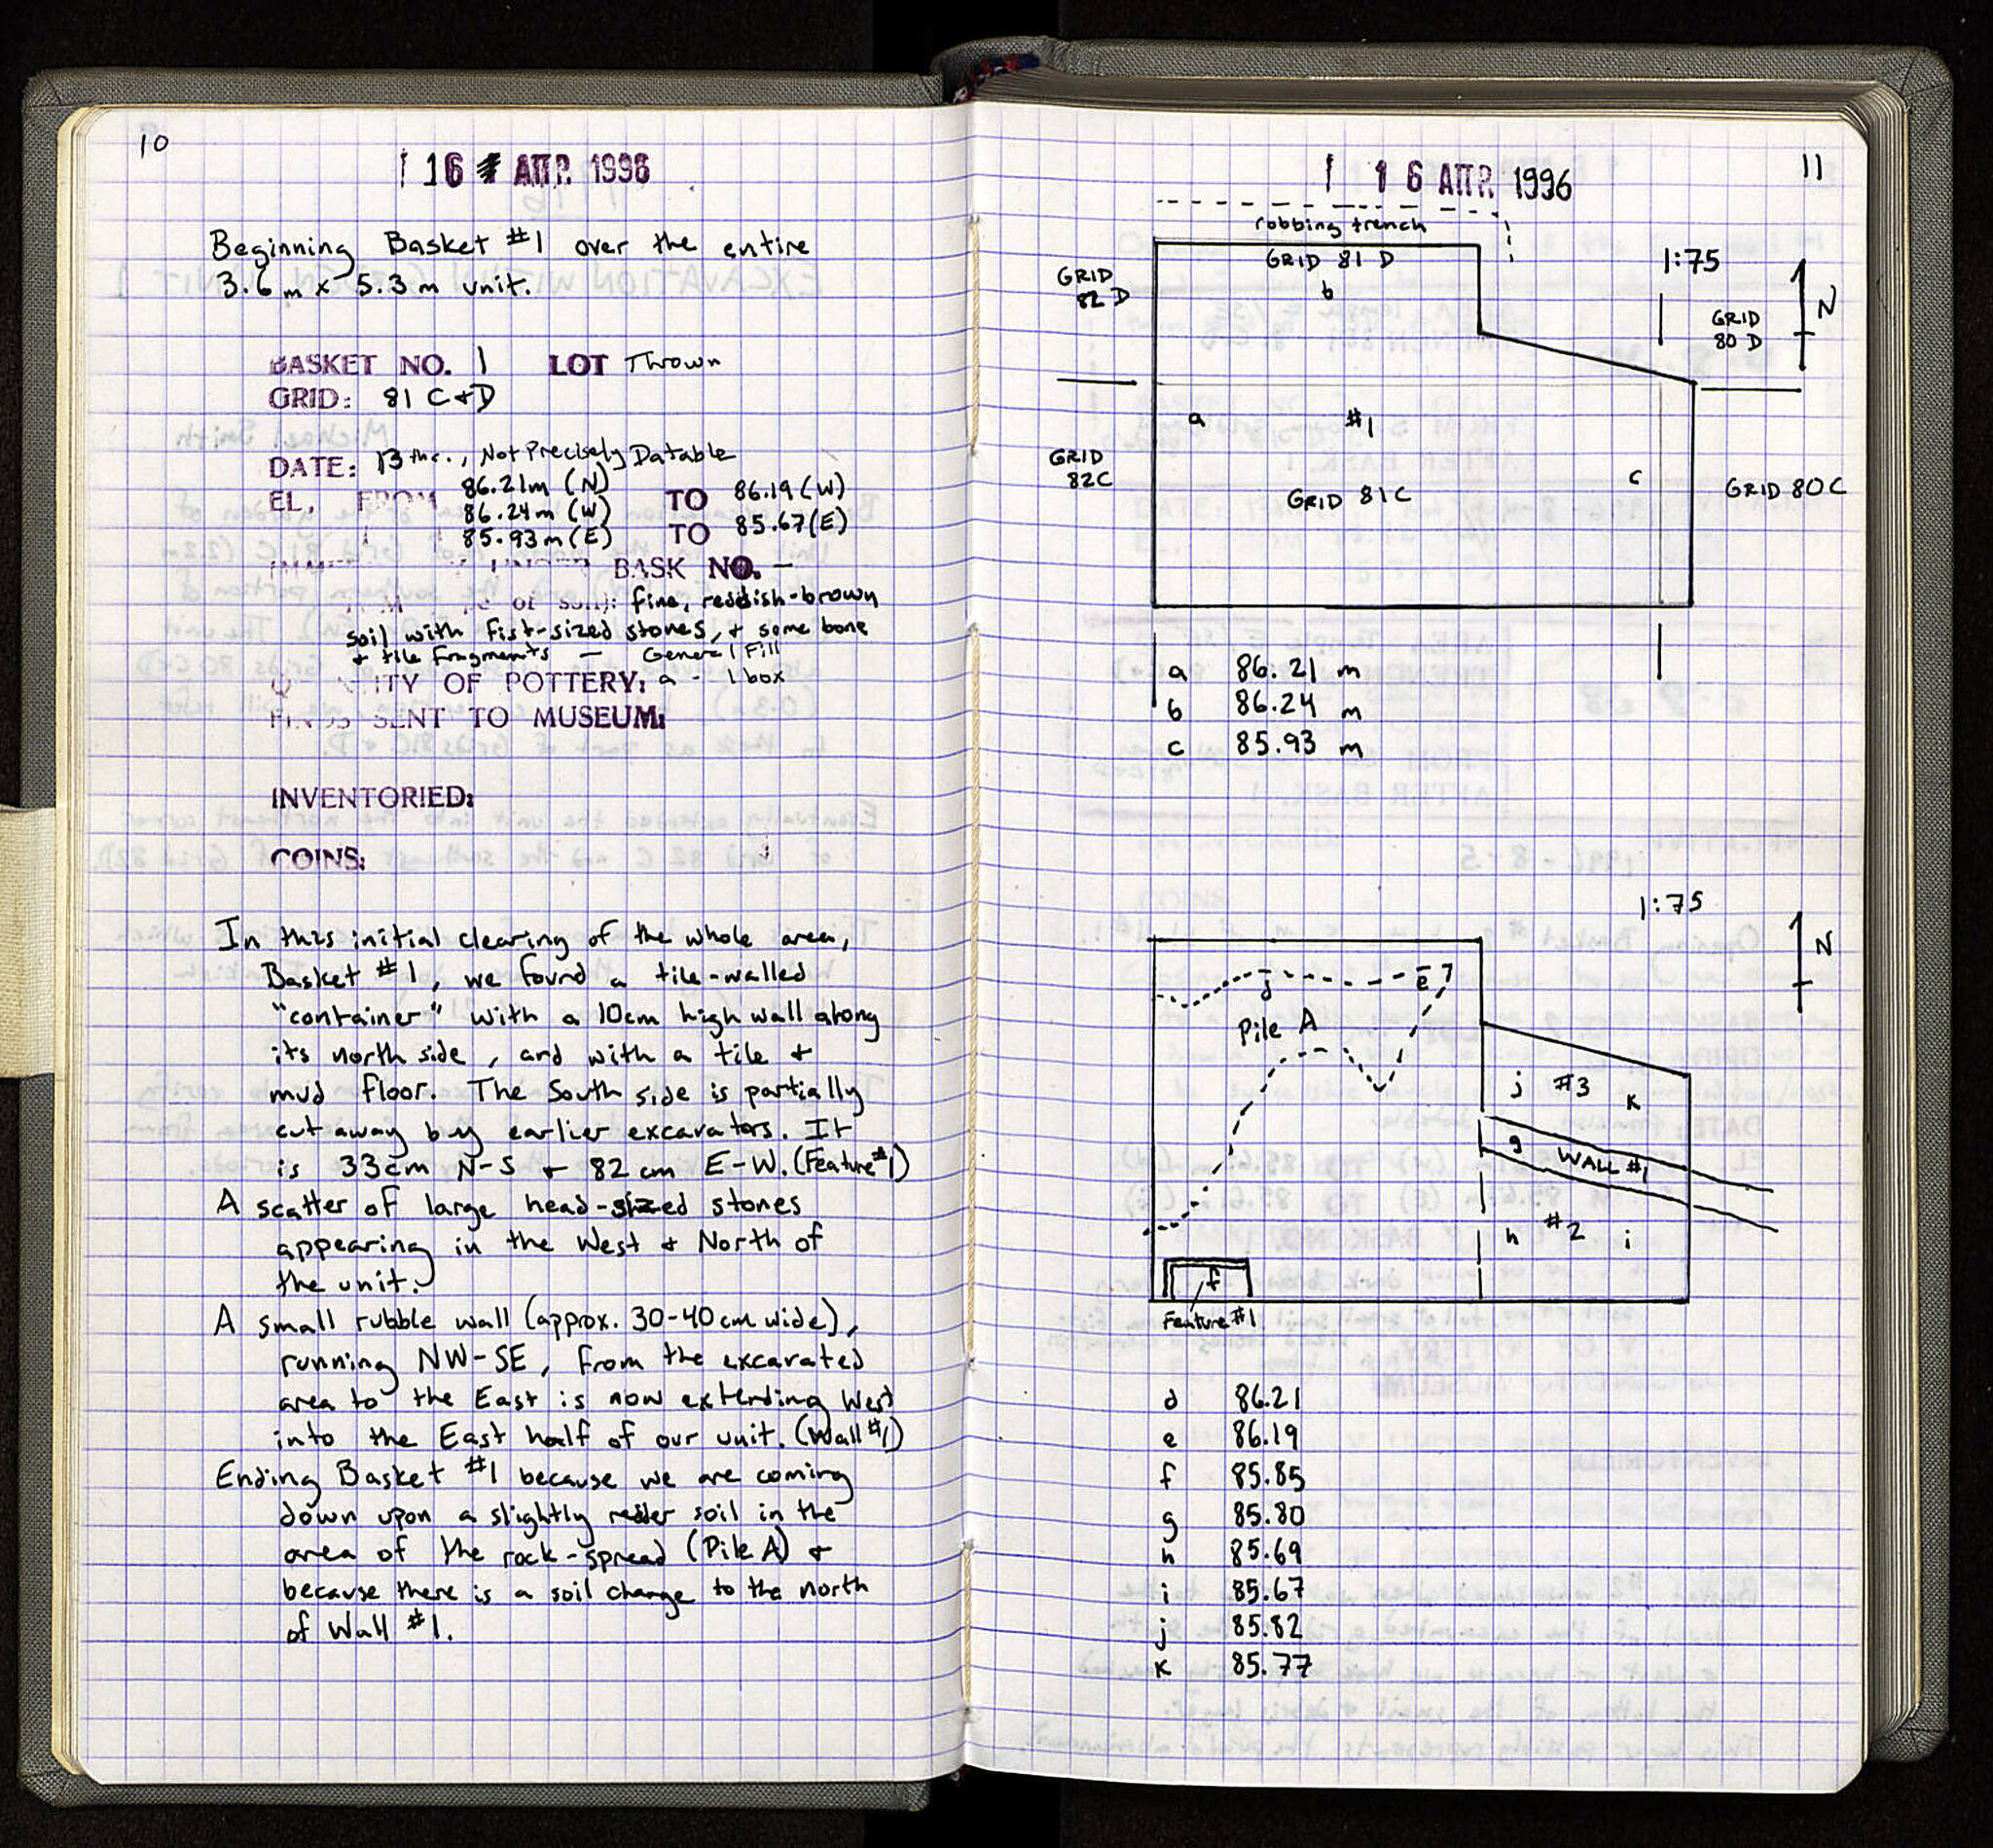 10
16 ΑΠΡ. 1996
Beginning Basket #1 over the entire
3.6m x 5.3m unit.
BASKET NO. 1 LOT Thrown
GRID: 81 C+D
DATE: 13thc., Not Precisely Datable
EL, FROM 86.21m (N) TO 86.19(W)
86.24m (W)
85.93m(E) TO 85.67(E)
UNDER BASK NO. –
of soil): fine, reddish-brown
soil with fist-sized stones, + some bone
+ tile fragments — General Fill
QUANTITY OF POTTERY: a - 1 box
FINDS SENT TO MUSEUM:
INVENTORIED:
COINS:
In this initial clearing of the whole area,
Basket #1, we found a tile-walled
"container" with a 10cm high wall along
its north side, and with a tile +
mud floor. The South side is partially
cut away by earlier excavators. It
is 33cm N-S + 82 cm E-W. (Feature #1)
A scatter of large head-sized stones
appearing in the West + North of
the unit.
A small rubble wall (approx. 30-40cm wide),
running NW-SE, from the excavated
area to the East is now extending West
into the East half of our unit. (Wall #1)
Ending Basket #1 because we are coming
down upon a slightly redder soil in the
area of the rock-spread (Pile A) +
because there is a soil change to the north
of Wall #1.
11
16 ΑΠΡ. 1996
robbing trench
GRID 81 D
b
GRID
82 D
1:75
N
GRID
80 D
a
#1
GRID
82C
c
GRID 81C
GRID 80C
a 86.21 m
b 86.24 m
c 85.93 m
1:75
N
j
e
Pile A
j #3 k
g WALL #1
h #2 i
f
Feature #1
d 86.21
e 86.19
f 85.85
g 85.80
h 85.69
i 85.67
j 85.82
k 85.77